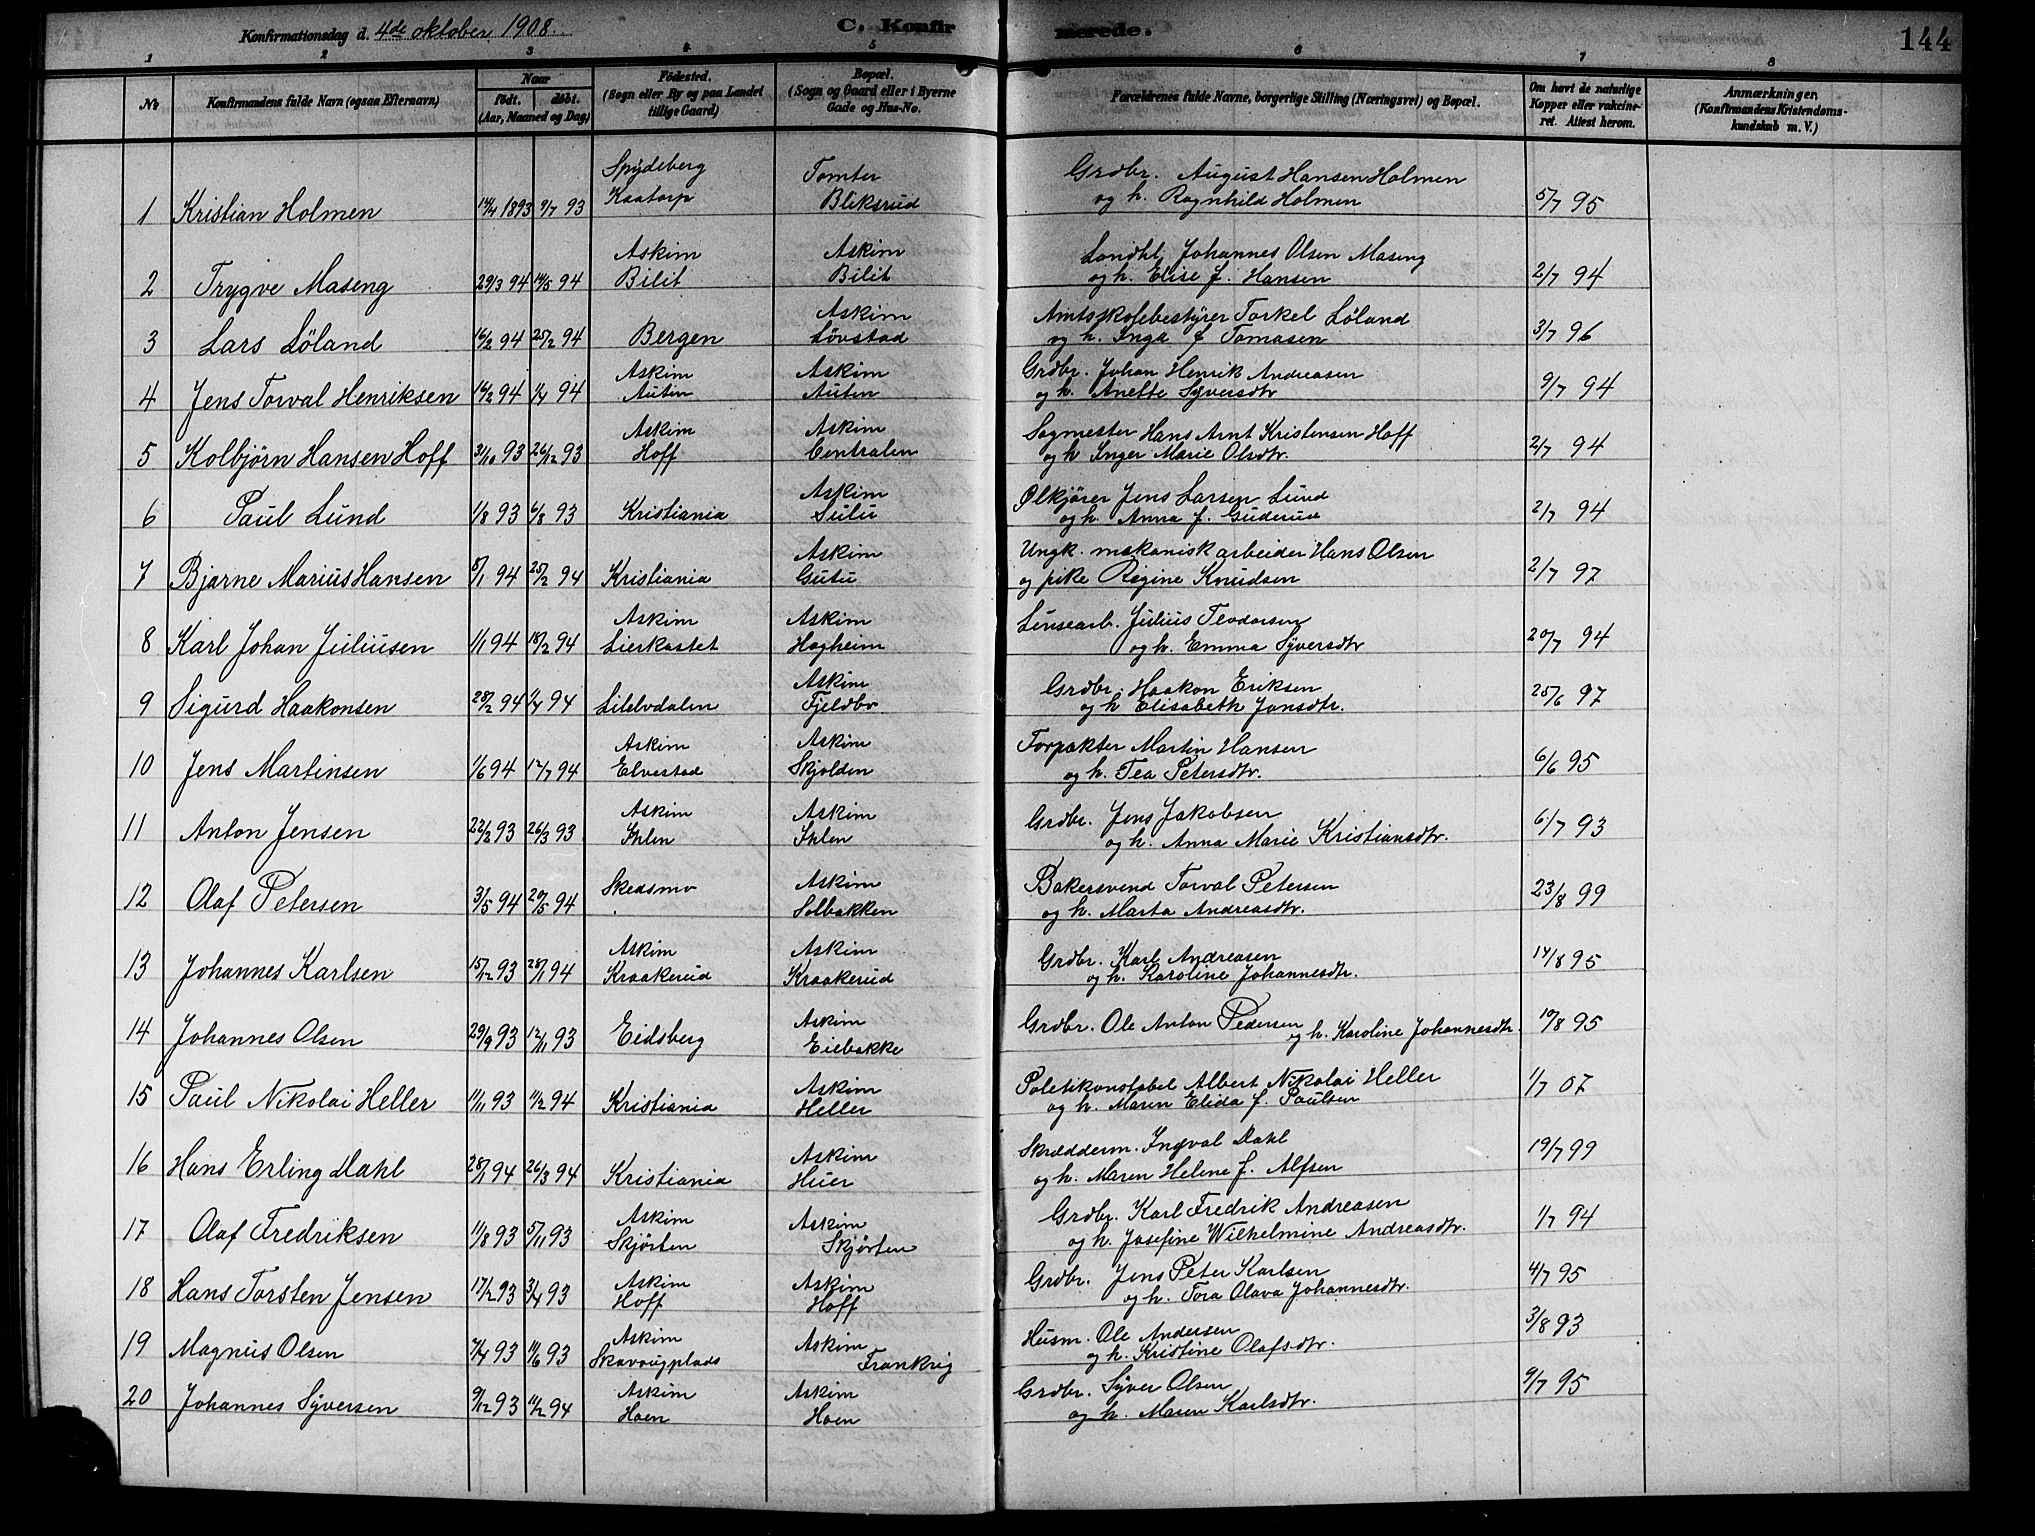 Konfirmationsdag d. 4de oktober 1908. C. Konfirmerede. 144
1 2 3 4 5 6 7 8
No Konfirmandens fulde Navn (ogsaa Efternavn) Naar født. døbt. (Aar, Maaned og Dag) Fødested. (Sogn eller By og paa Landet tillige Gaard) Bopæl. (Sogn og Gaard eller i Byerne Gade og Hus-No. Forældrenes fulde Navne, borgerlige Stilling (Næringsvei) og Bopæl. Om havt de naturlige Kopper eller vakcineret. Attest herom. Anmærkninger. (Konfirmandens Kristendomskundskab m. V.)
Spydeberg Tomter Grdbr. August Hansen Holmen
1 Kristian Holmen 14/4 1893 9/7 93 Kaatorp Bliksrud og h. Ragnhild Holmen 5/7 95
Askim Askim Landhl. Johannes Olsen Maseng
2 Trygve Maseng 29/3 94 14/5 94 Bilit Bilit og h. Elise f. Hansen 2/7 94
Askim Amtsskolebestyrer Torkel Löland
3 Lars Löland 16/2 94 25/2 94 Bergen Lövstad og h. Inga f Tomasen 3/7 96
Askim Askim Grdbr. Johan Henrik Andreasen
4 Jens Torval Henriksen 14/2 94 1/4 94 Auten Auten og h. Anette Syversdtr 9/7 94
Askim Askim Sagmester Hans Arnt Kristensen Hoff
5 Kolbjörn Hansen Hoff 31/10 93 26/12 93 Hoff Centralen og h Inger Marie Olsdtr. 2/7 94
Askim Ølkjører Jens Larsen Lund
6 Paul Lund 1/8 93 6/8 93 Kristiania Sulu og h. Anna f. Guderud 2/7 94
Askim Ungk. mekanisk arbeider Hans Olsen
7 Bjarne Marius Hansen 5/1 94 25/2 94 Kristiania Gutu og pike Regine Knudsen 2/7 97
Askim Askim Linsearb. Julius Teodorsen
8 Karl Johan Juliusen 1/1 94 18/2 94 Lierkastet Hagheim og h. Emma Syversdtr 20/7 94
Askim Grdbr. Haakon Eriksen
9 Sigurd Haakonsen 28/2 94 1/4 94 Lilelvdalen Fjeldbo og h Elisabeth Jonsdtr. 25/6 97
Askim Askim Forpakter Martin Hansen
10 Jens Martinsen 1/6 94 17/7 94 Elvestad Skjolden og h. Tea Petersdtr. 6/6 95
Askim Askim Grdbr. Jens Jakobsen
11 Anton Jensen 22/2 93 26/3 93 Ihlen Ihlen og h. Anna Marie Kristiansdtr. 6/7 93
Skedsmo Askim Bakersvend Torval Petersen
12 Olaf Petersen 3/5 94 20/5 94 Solbakken og h. Marta Andreasdtr. 23/8 99
Askim Askim Grdbr. Karl Andreasen
13 Johannes Karlsen 15/12 93 28/1 94 Kraakerud Kraakerud og h. Karoline Johannesdtr. 14/8 95
Askim Grdbr. Ole Anton Pedersen
14 Johannes Olsen 29/9 93 12/11 93 Eidsberg Eiebakke og h. Karoline Johannesdtr. 10/8 95
Askim Poletikonstabel Albert Nikolai Heller
15 Paul Nikolai Heller 11/11 93 11/2 94 Kristiania Heller og h. Maren Elida f. Paulsen 1/7 07
Askim Skrædderm. Ingval Dahl
16 Hans Erling Dahl 28/1 94 26/3 94 Kristiania Huer og h. Maren Helene f. Alfsen 19/7 99
Askim Askim Grdbr. Karl Fredrik Andreasen
17 Olaf Fredriksen 11/8 93 5/11 93 Skjørten Skjørten og h. Josefine Wilhelmine Andreasdtr. 1/7 94
Askim Askim Grdbr. Jens Peter Karlsen
18 Hans Torsten Jensen 17/2 93 3/4 93 Hoff Hoff og h. Tora Olava Johannesdtr. 4/7 95
Askim Askim Husm. Ole Andersen
19 Magnus Olsen 7/4 93 11/6 93 Skavougplads Frankrig og h. Kristine Olafsdtr. 3/8 93
Askim Askim Grdbr. Syver Olsen
20 Johannes Syversen 9/12 93 11/2 94 Hoen Hoen og h. Maren Karlsdtr. 9/7 95